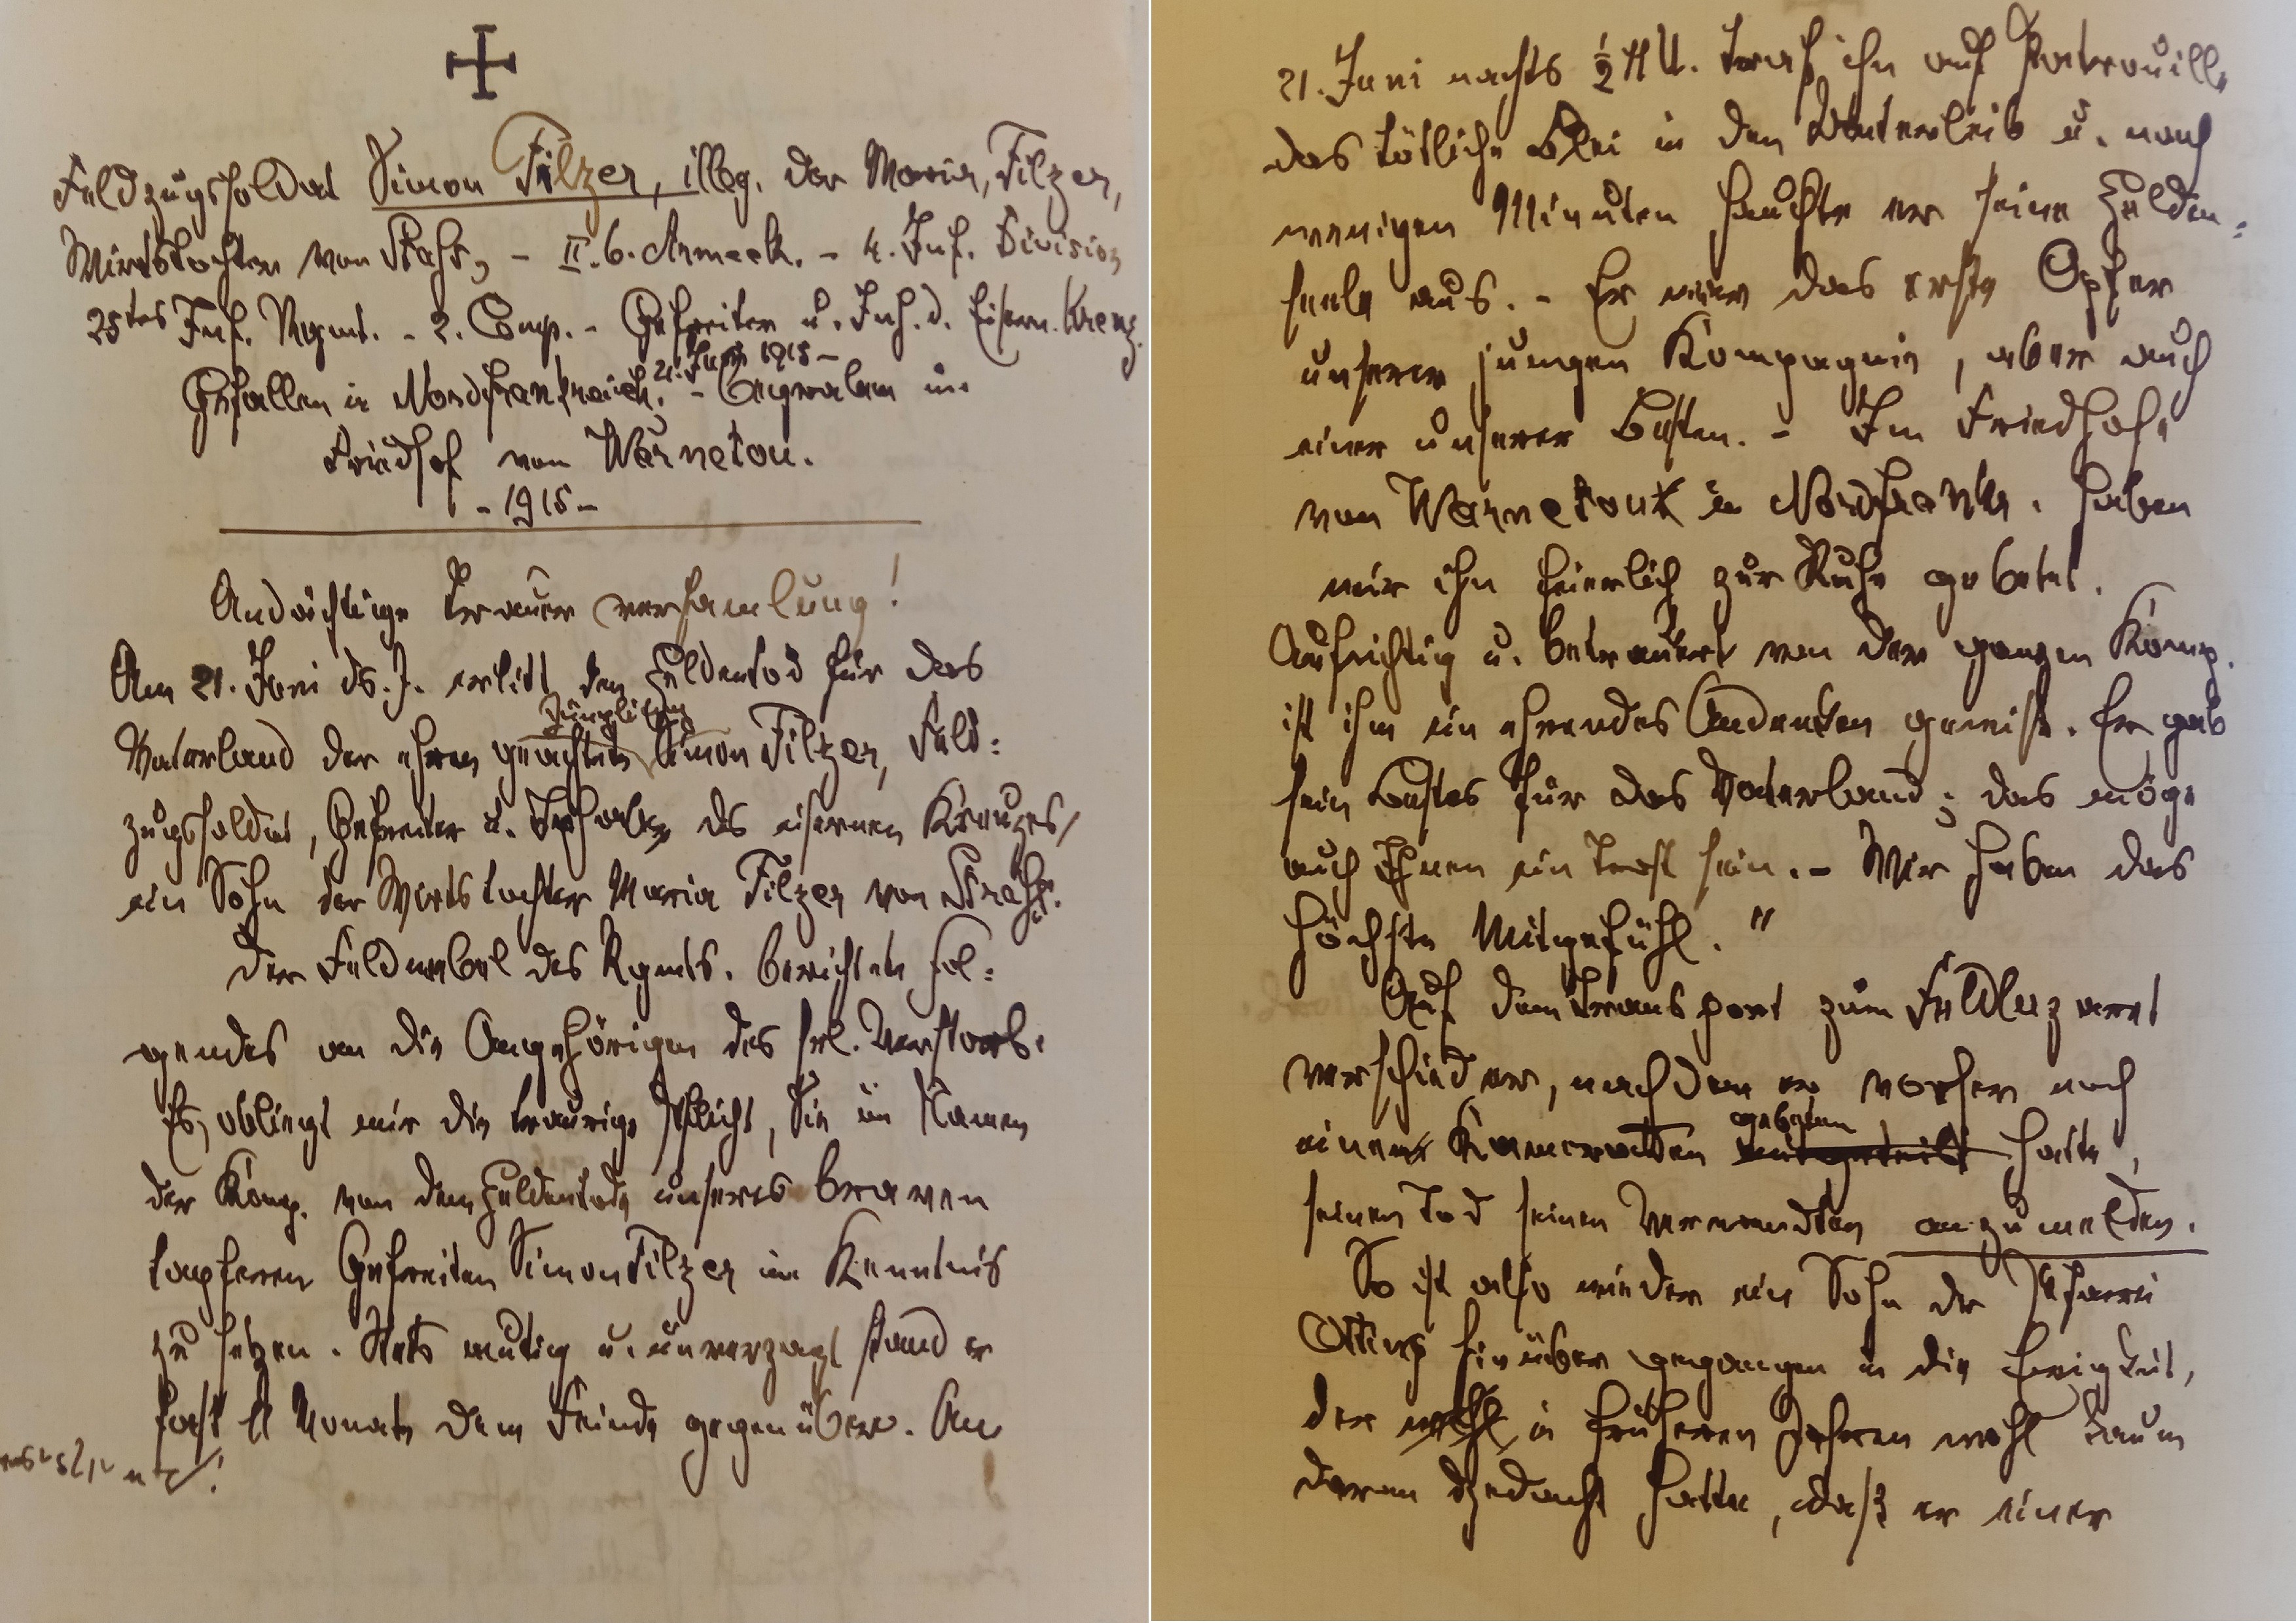 Feldzugssoldat Simon Filzer, illeg. der Maria Filzer,
Wirtstochter von Straß, - II. b. Armeek. - 4. Inf. Division
25tes Inf. Regmt. - 2. Comp. - Gefreiter u. Inh. d. Eisern. Kreuz.
21. Juni 1915 -
Gefallen in Nordfrankreich. - Begraben im
Friedhof von Warneton.
- 1915 -
Andächtige Trauerversamlung!
Am 21. Juni ds. J. erlitt den Heldentod für das
Jüngling
Vaterland der ehren geachtete Simon Filzer, Feld=
zugssoldat, Gefreiter u. Inhaber des eisernen Kreuzes,
ein Sohn der Wirtstochter Maria Filzer von Straß.
Der Feldwebel des Rgmts. berichtete fol=
gendes an die Angehörigen des sel. Verstorb.
Es obliegt mir die traurige Pflicht, Sie im Namen
der Komp. von dem Heldentode unseres braven
tapferen Gefreiten Simon Filzer in Kenntnis
zu setzen. Stets mutig u. unverzagt stand er
fast 11 Monate dem Feinde gegenüber. Am
21. Juni nachts ½ 11 U. traf ihn auf Patrouille
das tötliche Blei in den Unterleib u. nach
wenigen Minuten hauchte er seine Helden=
seele aus. - Er war das erste Opfer
unserer jungen Kompagnie, aber auch
einer unserer Besten. - Im Friedhofe
von Warneton in Nordfrankr. haben
wir ihn feierlich zur Ruhe gebetet.
Aufrichtig u. betrauert von der ganzen Komp.
ist ihm ein ehrendes Andenken gewiß. Er gab
sein Bestes für das Vaterland; das möge
auch Ihnen ein Trost sein. - Wir haben das
höchste Mitgefühl."
Auf dem Transport zum Feldlazarett
verschied er, nachdem er vorher noch
gebeten
einen Kameraden mitgeteilt hatte,
seinen Tod seinen Verwandten anzumelden.
So ist also wieder ein Sohn der Pfarrei
Otting hinüber gegangen in die Ewigkeit,
der wohl in früheren Jahren wohl kaum
daran gedacht hatte, daß er einer